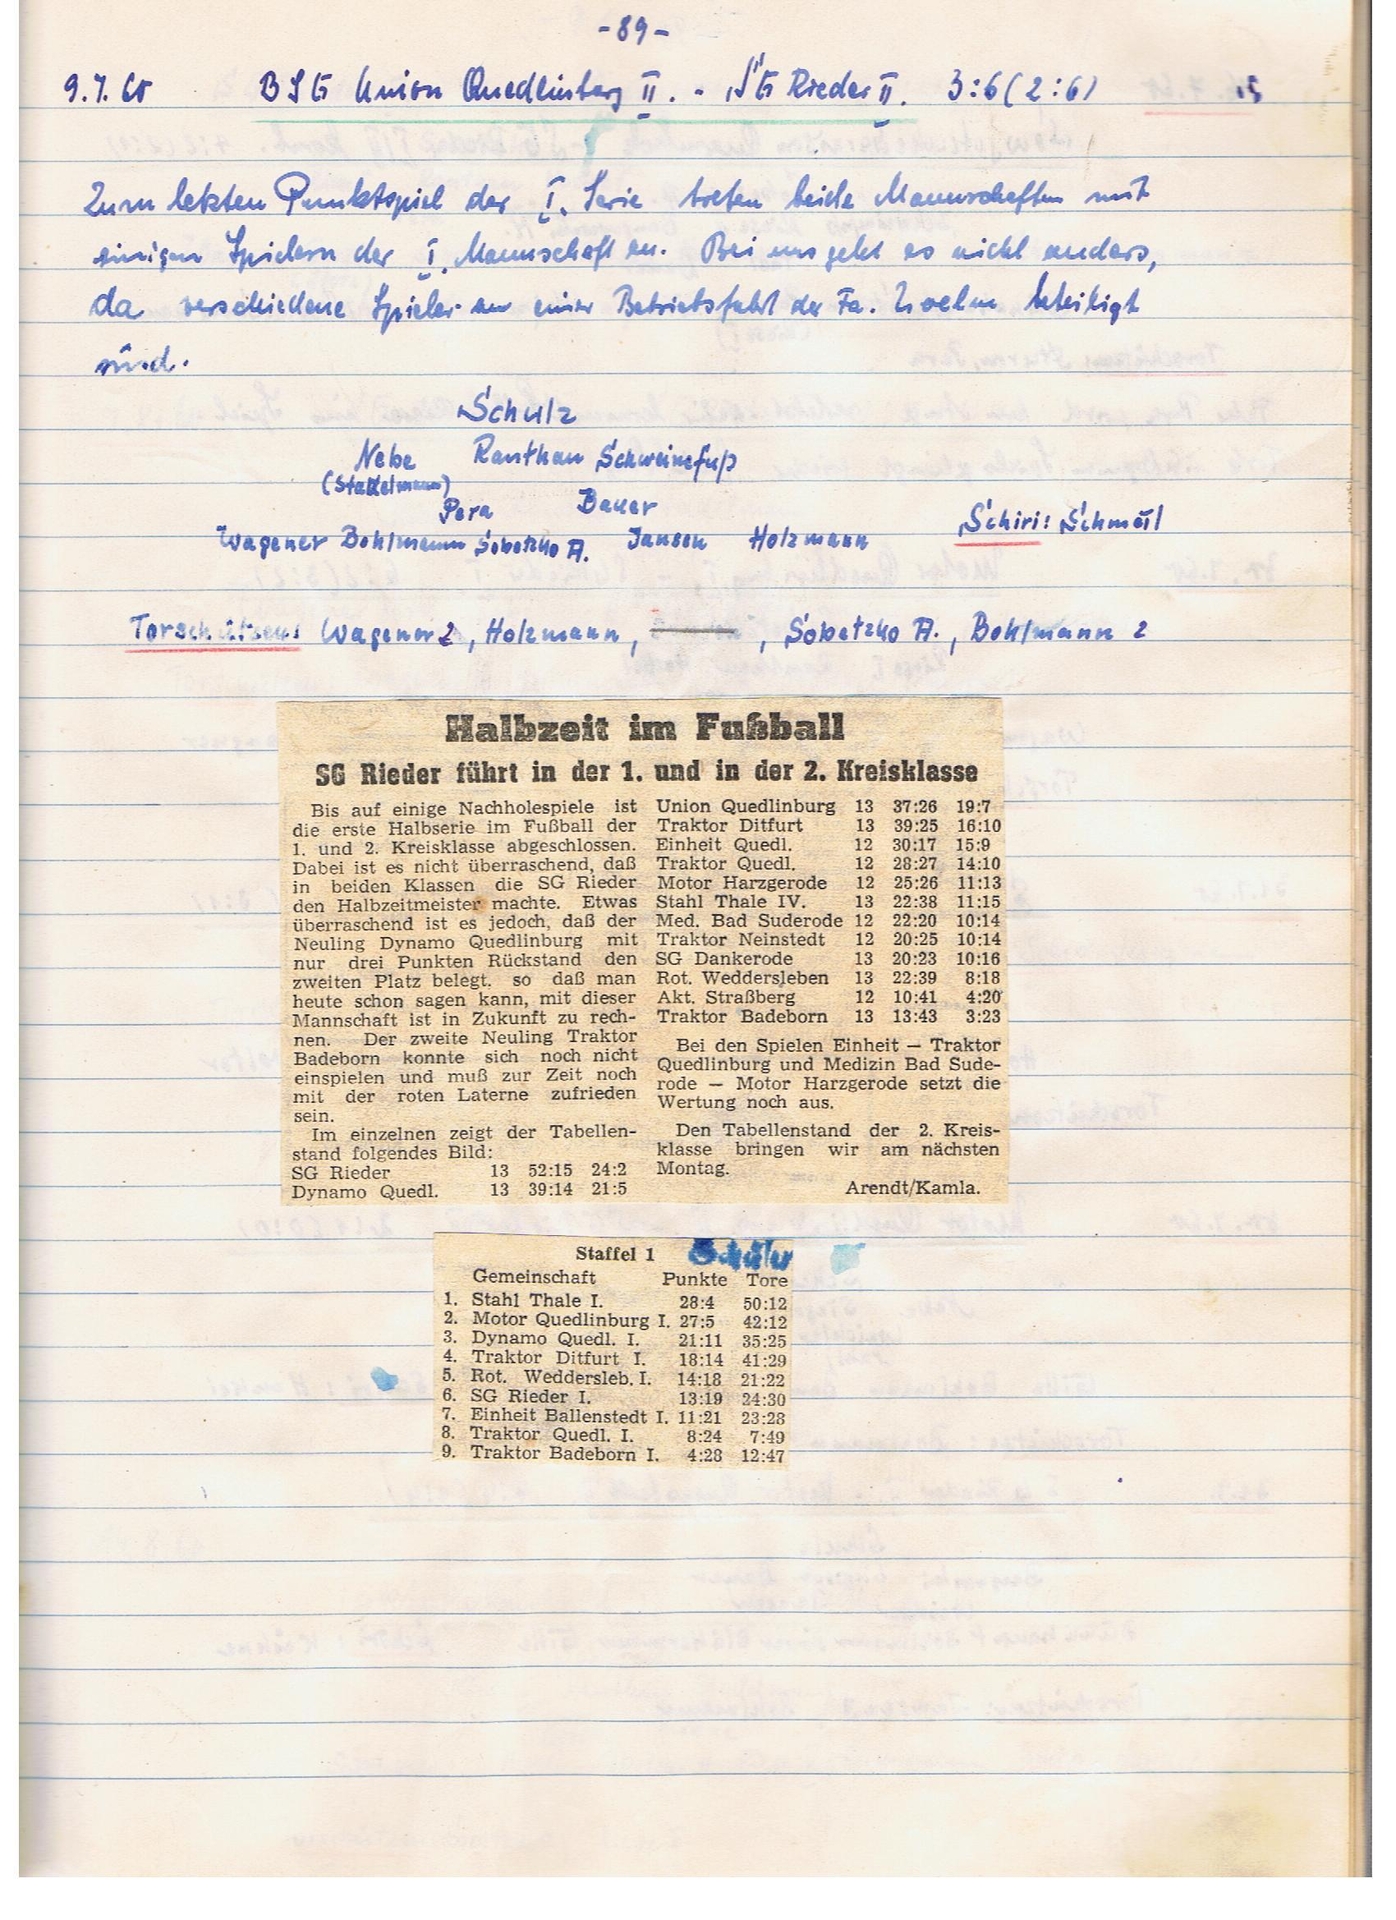 -89-
9.7.60 BSG Union Quedlinburg II. - SG Rieder II. 3:6 (2:6) 15
Zum letzten Punktspiel der I. Serie treten beide Mannschaften mit
einigen Spielern der I. Mannschaft an. Bei uns geht es nicht anders,
da verschiedene Spieler an einer Betriebsfahrt der Fa. beteiligt
sind.
Schulz
Nebe Ranthan Schweinefuß
(Stackelmann)
Pera Bauer
Wagener Bohlmann Sobetzko A. Jansen Holzmann Schiri: Schmäl
Torschützen: Wagener 2, Holzmann, , Sobetzko A., Bohlmann 2
Halbzeit im Fußball
SG Rieder führt in der 1. und in der 2. Kreisklasse
Bis auf einige Nachholespiele ist
die erste Halbserie im Fußball der
1. und 2. Kreisklasse abgeschlossen.
Dabei ist es nicht überraschend, daß
in beiden Klassen die SG Rieder
den Halbzeitmeister machte. Etwas
überraschend ist es jedoch, daß der
Neuling Dynamo Quedlinburg mit
nur drei Punkten Rückstand den
zweiten Platz belegt. so daß man
heute schon sagen kann, mit dieser
Mannschaft ist in Zukunft zu rech-
nen. Der zweite Neuling Traktor
Badeborn konnte sich noch nicht
einspielen und muß zur Zeit noch
mit der roten Laterne zufrieden
sein.
Im einzelnen zeigt der Tabellen-
stand folgendes Bild:
SG Rieder 13 52:15 24:2
Dynamo Quedl. 13 39:14 21:5
Union Quedlinburg 13 37:26 19:7
Traktor Ditfurt 13 39:25 16:10
Einheit Quedl. 12 30:17 15:9
Traktor Quedl. 12 28:27 14:10
Motor Harzgerode 12 25:26 11:13
Stahl Thale IV. 13 22:38 11:15
Med. Bad Suderode 12 22:20 10:14
Traktor Neinstedt 12 20:25 10:14
SG Dankerode 13 20:23 10:16
Rot. Weddersleben 13 22:39 8:18
Akt. Straßberg 12 10:41 4:20
Traktor Badeborn 13 13:43 3:23
Bei den Spielen Einheit — Traktor
Quedlinburg und Medizin Bad Sude-
rode — Motor Harzgerode setzt die
Wertung noch aus.
Den Tabellenstand der 2. Kreis-
klasse bringen wir am nächsten
Montag.
Arendt/Kamla.
Staffel 1 Schüler
Gemeinschaft Punkte Tore
1. Stahl Thale I. 28:4 50:12
2. Motor Quedlinburg I. 27:5 42:12
3. Dynamo Quedl. I. 21:11 35:25
4. Traktor Ditfurt I. 18:14 41:29
5. Rot. Weddersleb. I. 14:18 21:22
6. SG Rieder I. 13:19 24:30
7. Einheit Ballenstedt I. 11:21 23:28
8. Traktor Quedl. I. 8:24 7:49
9. Traktor Badeborn I. 4:28 12:47